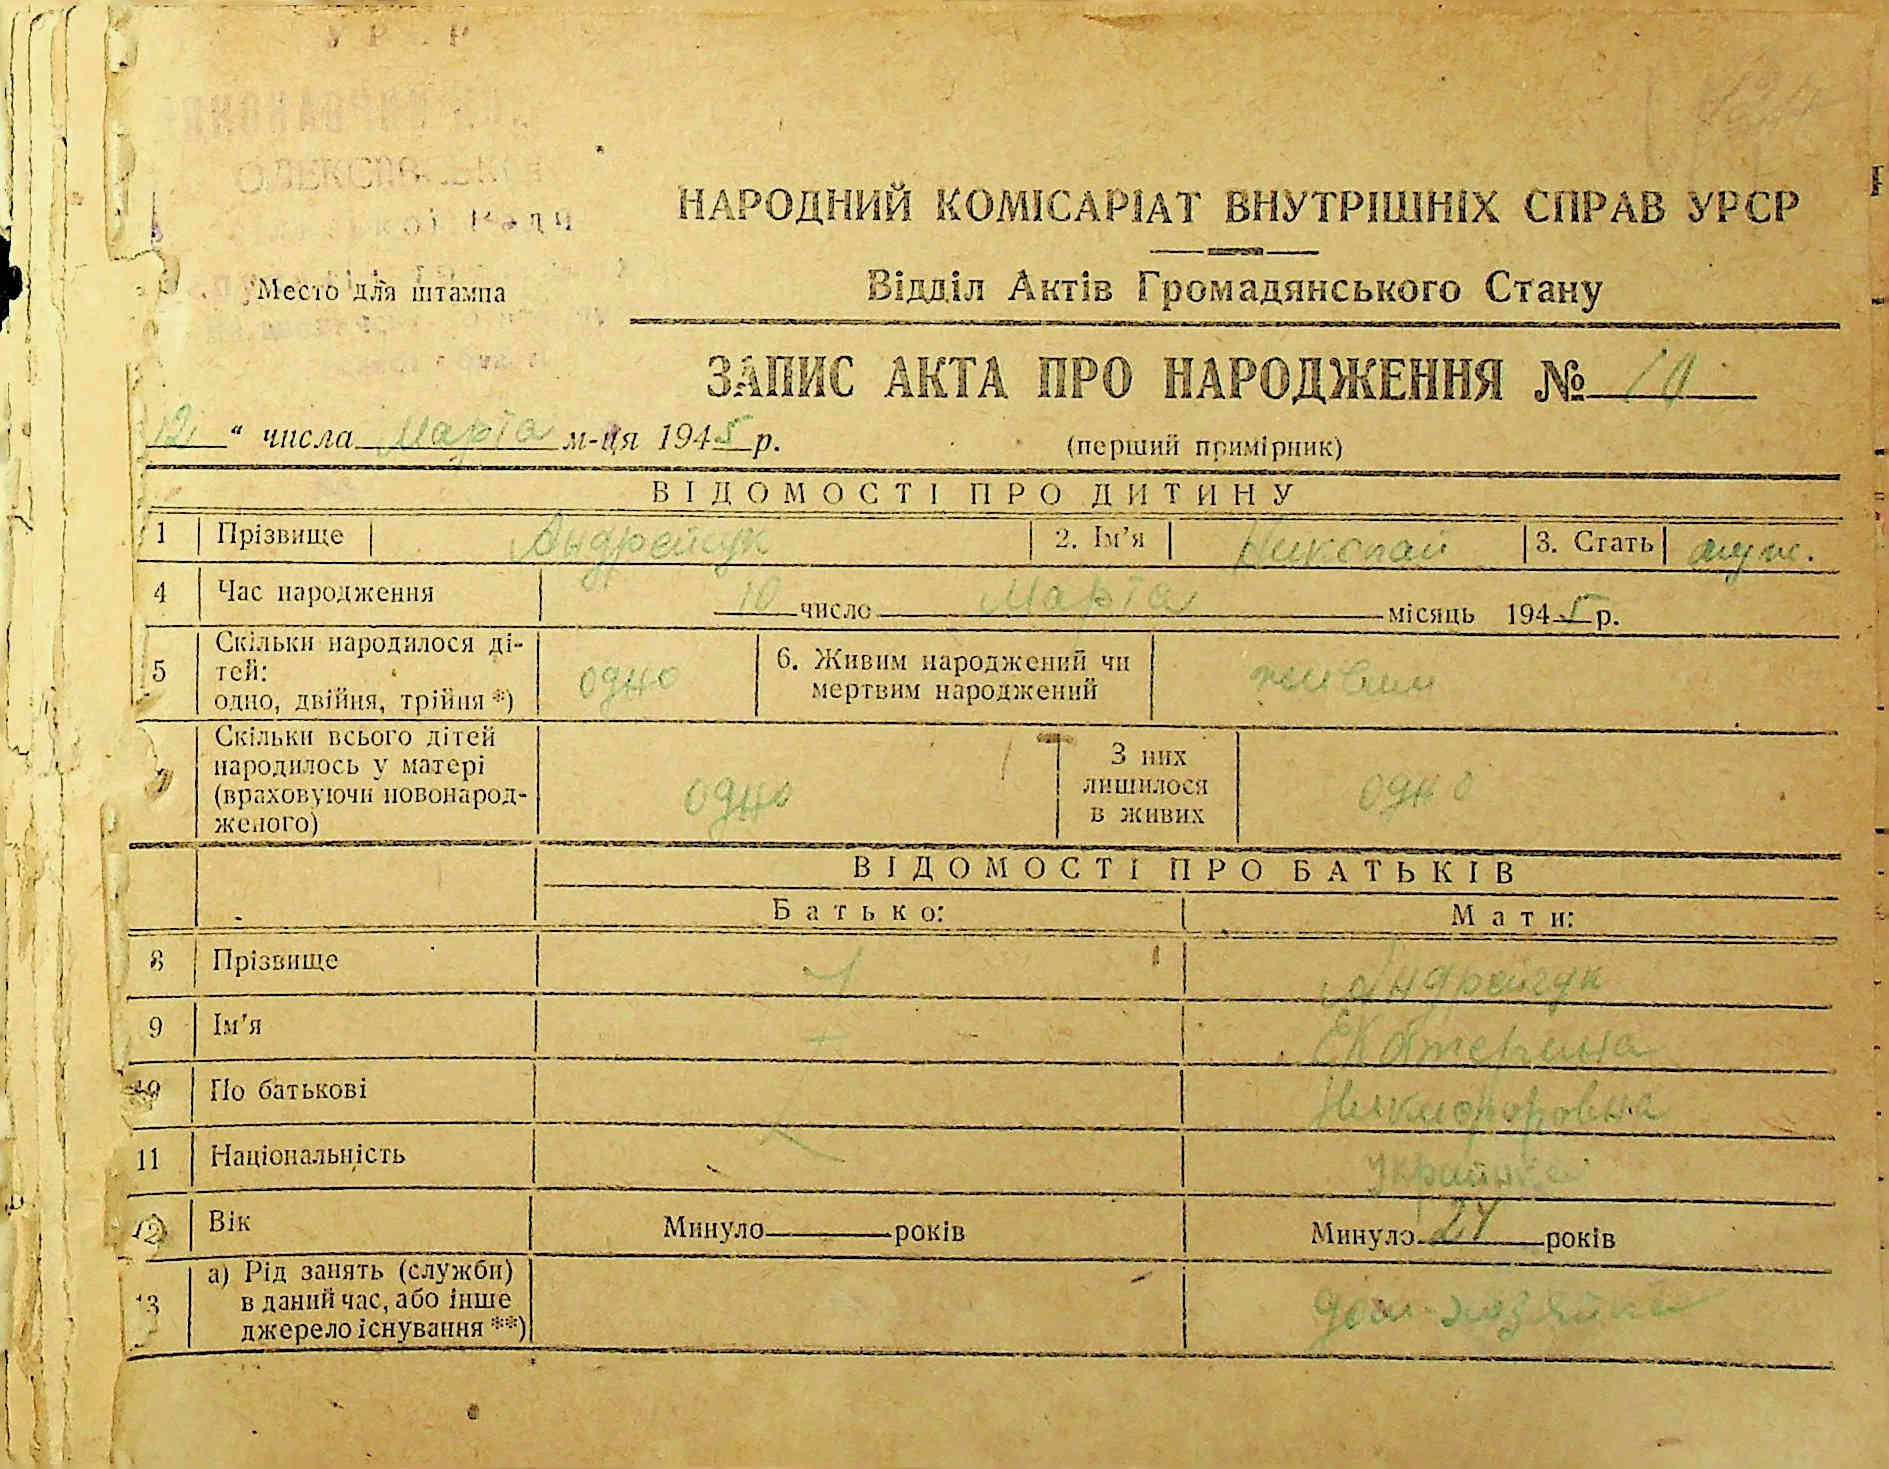 НАРОДНИЙ КОМІСАРІАТ ВНУТРІШНІХ СПРАВ УРСР
Відділ Актів Громадянського Стану
Место для штампа
ЗАПИС АКТА ПРО НАРОДЖЕННЯ № 10
12 " числа Марта м-ця 1945 р.
(перший примірник)
ВІДОМОСТІ ПРО ДИТИНУ
1 Прізвище Андрейчук 2. Ім'я Николай 3. Стать муж.
4 Час народження 10 число Марта місяць 1945 р.
5 Скільки народилося ді-
тей:
одно, двійня, трійня *) одно 6. Живим народжений чи
мертвим народжений живим
7 Скільки всього дітей
народилось у матері
(враховуючи новонарод-
женого) одно
З них
лишилося
в живих одно
ВІДОМОСТІ ПРО БАТЬКІВ
Батько: Мати:
8 Прізвище Андрейчук
9 Ім'я Екатерина
10 По батькові Никифоровна
11 Національність Українка
12 Вік Минуло років Минуло 24 років
13 а) Рід занять (служби)
в даний час, або інше
джерело існування **) дом-хозяйка